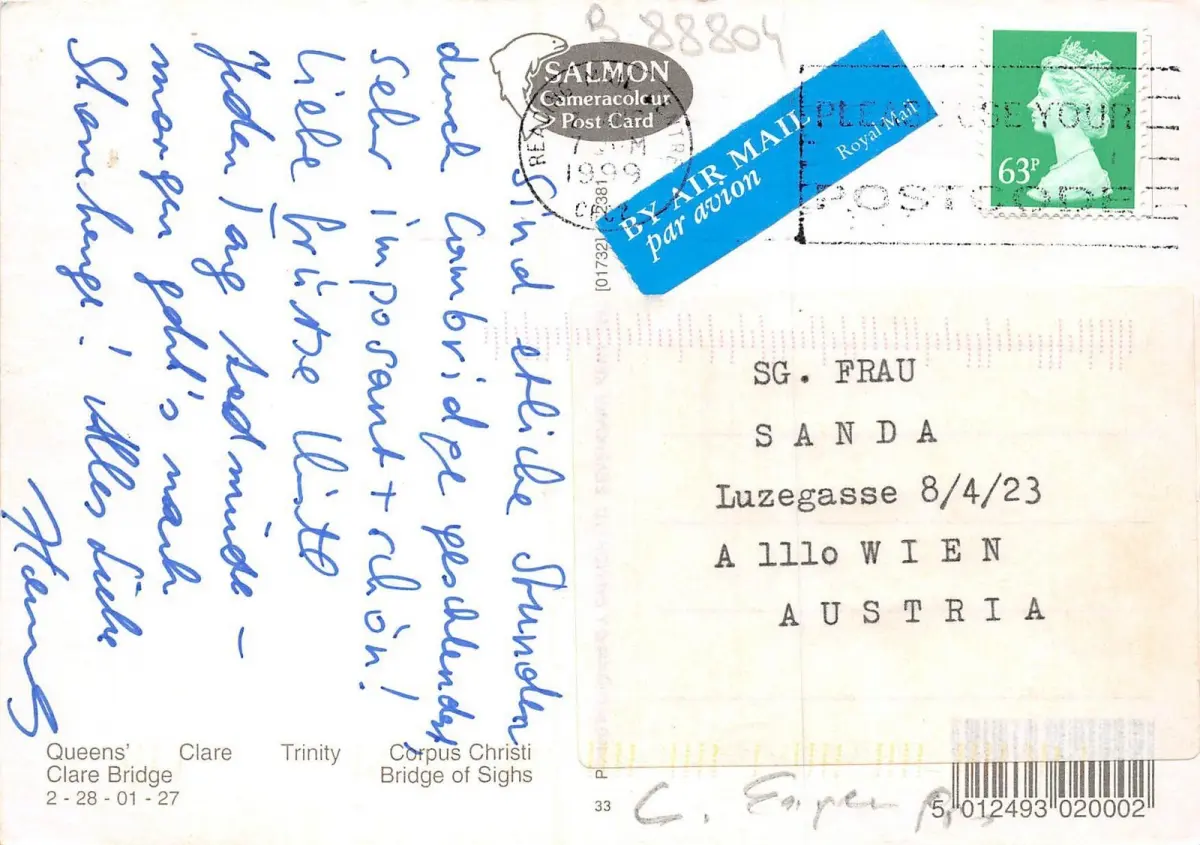 B 88804
SALMON
Cameracolour
Post Card
1999
BY AIR MAIL
par avion
Royal Mail
PLEASE USE YOUR
POSTCODE
63P
Sind etliche Stunden
durch Cambridge geschlendert,
sehr imposant + schön!
Liebe Grüsse
Jeden Tag
morgen geht's nach
Stonehenge! Alles Liebe
SG. FRAU
SANDA
Luzegasse 8/4/23
A 1110 WIEN
AUSTRIA
Queens' Clare Trinity Corpus Christi
Clare Bridge Bridge of Sighs
2 - 28 - 01 - 27
33
5 012493 020002